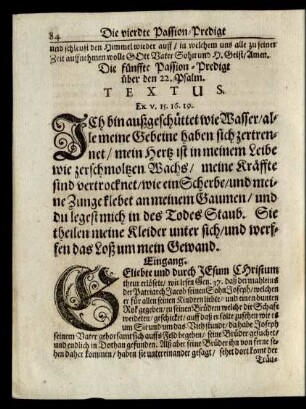 84 Die vierdte Passion-Predigt
und schleust den Himmel wieder auff / in welchem uns alle zu seiner
Zeit auffnehmen wolle GOtt Vater Sohn und H. Geist / Amen.
Die fünffte Passion-Predigt
über den 22. Psalm.
TEXTUS.
Ex v. 15. 16. 19.
ICh bin außgeschüttet wie Wasser / al-
le meine Gebeine haben sich zertren-
net / mein Hertz ist in meinem Leibe
wie zerschmoltzen Wachs / meine Kräffte
sind vertrocknet / wie ein Scherbe / und mei-
ne Zunge klebet an meinem Gaumen / und
du legest mich in des Todes Staub. Sie
theilen meine Kleider unter sich / und werf-
fen das Loß um mein Gewand.
Eingang.
GEliebte und durch JEsum CHristum
theur erlösete / wir lesen Gen. 37. daß dermahleins
der Patriarch Jacob seinen Sohn Joseph / welchen
er für allen seinen Kindern liebte / und einen bunten
Rok gegeben / zu seinen Brüdern welche die Schafe
werdeten / geschicket / auff daß er solte zusehen wie es
um Sie und um das Vieh stünde / da habe Joseph
seinem Vater gehorsamt sich auffs Feld begeben / seine Brüder gesuchet /
und endlich in Dothan gefunden. Als aber seine Brüder ihn von ferne se-
hen daher kommen / haben sie untereinander gesagt / sehet dort komt der
Träu-